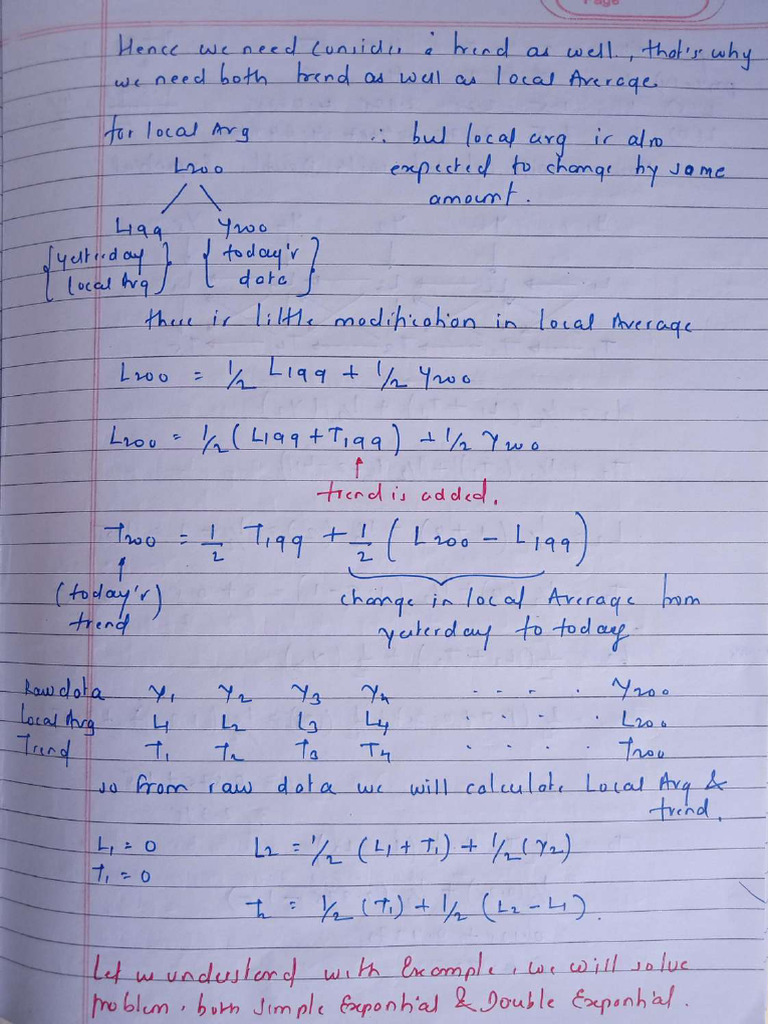 Page
Hence we need consider a trend as well, that's why
we need both trend as well as local Average
for local Avg
∴ but local avg is also
expected to change by some
amount.
L200
L199 Y200
{yesterday local Avg} {today's data}
there is little modification in local Average
L200 = 1/2 L199 + 1/2 Y200
L200 = 1/2 (L199 + T199) + 1/2 Y200
trend is added.
T200 = 1/2 T199 + 1/2 (L200 - L199)
(today's)
trend
change in local Average from
yaterday to today
Raw data Y1 Y2 Y3 Y4 . . . . Y200
Local Avg L1 L2 L3 L4 . . . . L200
Trend T1 T2 T3 T4 . . . . T200
so from raw data we will calculate Local Avg &
trend.
L1 = 0 L2 = 1/2 (L1 + T1) + 1/2 (Y2)
T1 = 0
T2 = 1/2 (T1) + 1/2 (L2 - L1).
Let us understand with Example, we will solve
problem, both Simple Exponhial & Double Exponhial.